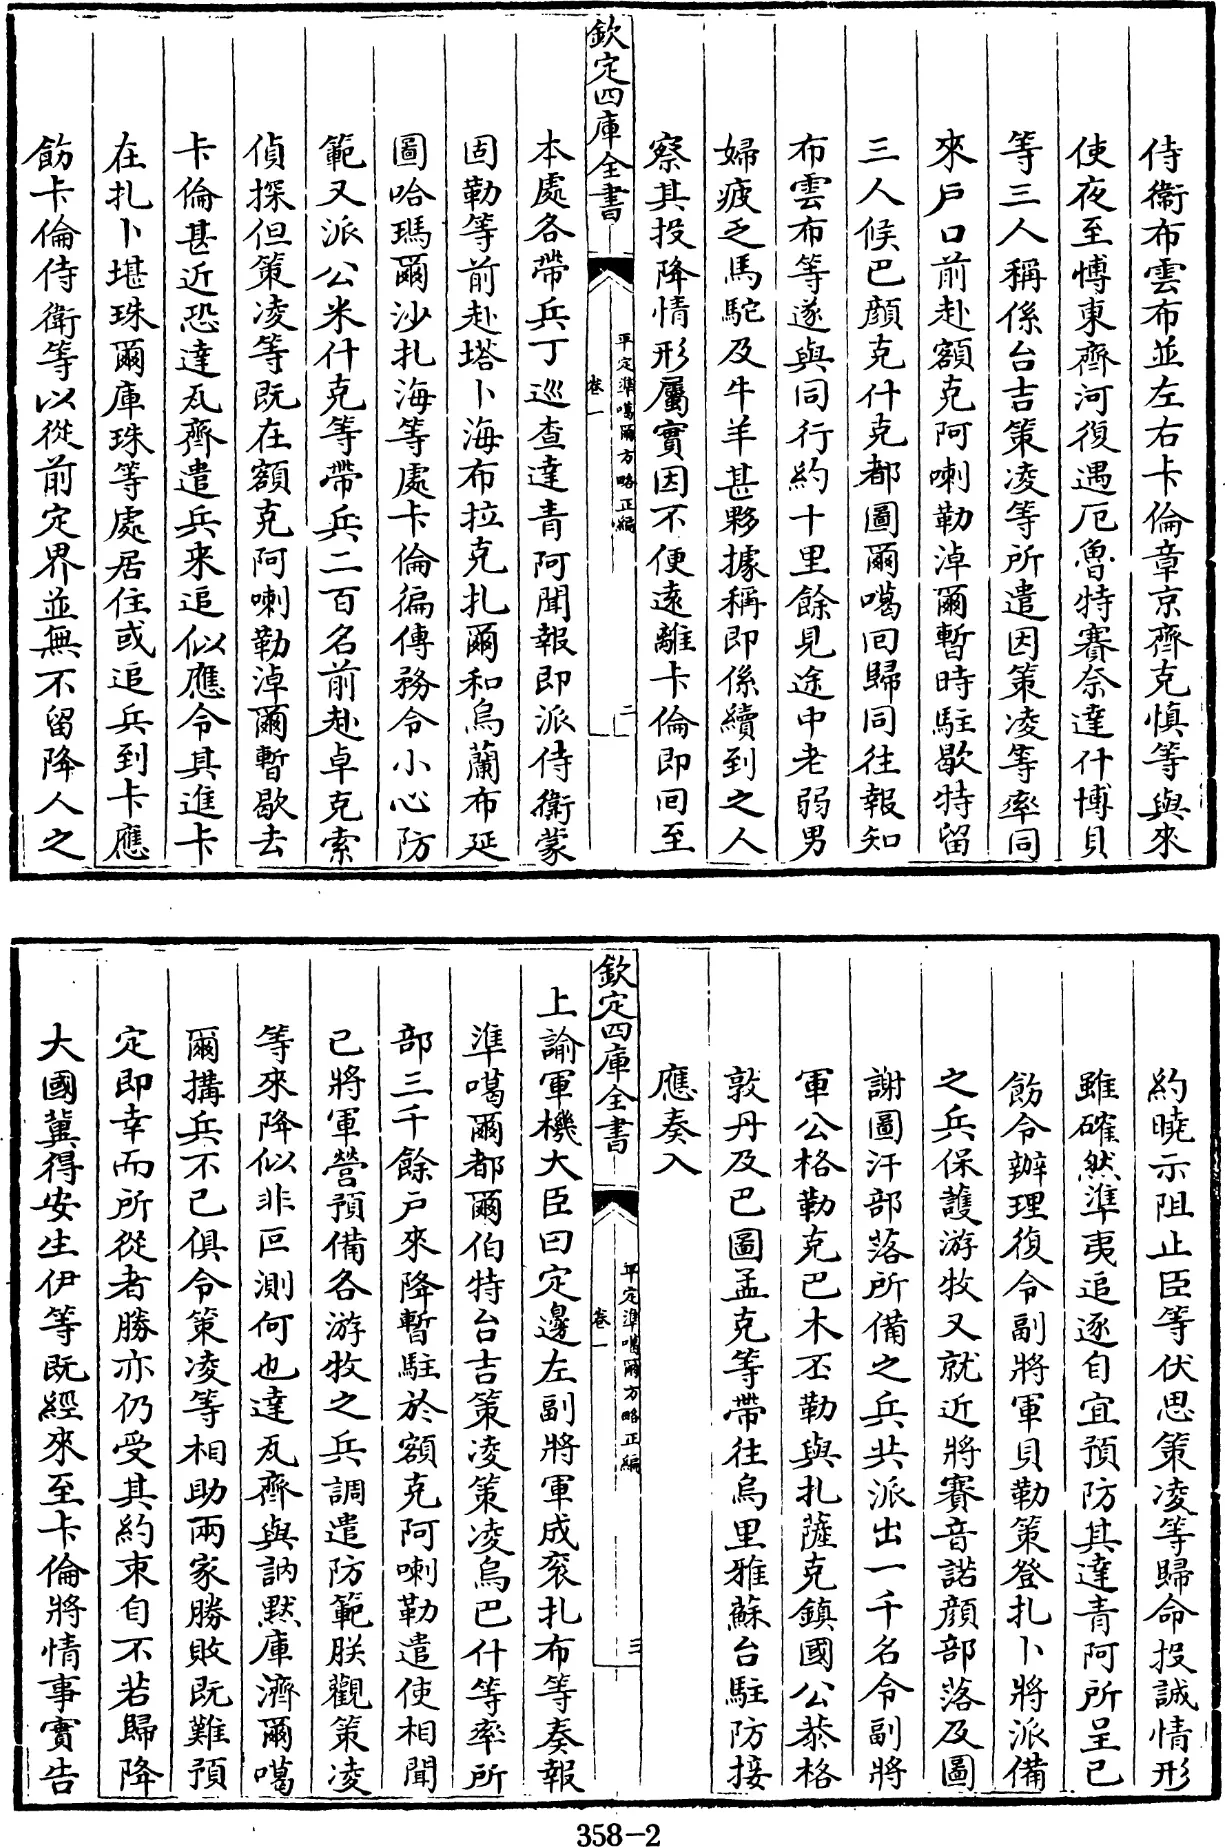 侍衛布雲布並左右卡倫章京齊克慎等與來
使夜至博東齊河復遇厄魯特賽奈達什博貝
等三人稱係台吉策凌等所遣因策凌等率同
來戶口前赴額克阿喇勒淖爾暫時駐歇特留
三人候巴顏克什克都圖爾噶回歸同往報知
布雲布等遂與同行約十里餘見途中老弱男
婦疲乏馬駝及牛羊甚夥據稱即係續到之人
察其投降情形屬實因不便遠離卡倫即回至
欽定四庫全書
平定準噶爾方略正編
卷一
二
本處各帶兵丁巡查達青阿聞報即派侍衛蒙
固勒等前赴塔卜海布拉克扎爾和烏蘭布延
圖哈瑪爾沙扎海等處卡倫徧傳務令小心防
範又派公米什克等帶兵二百名前赴卓克索
偵探但策凌等既在額克阿喇勒淖爾暫歇去
卡倫甚近恐達瓦齊遣兵來追似應令其進卡
在扎卜堪珠爾庫珠等處居住或追兵到卡應
飭卡倫侍衛等以從前定界並無不留降人之
約曉示阻止臣等伏思策凌等歸命投誠情形
雖確然準夷追逐自宜預防其達青阿所呈已
飭令辦理復令副將軍貝勒策登扎卜將派備
之兵保護游牧又就近將賽音諾顏部落及圖
謝圖汗部落所備之兵共派出一千名令副將
軍公格勒克巴木丕勒與扎薩克鎮國公恭格
敦丹及巴圖孟克等帶往烏里雅蘇台駐防接
應奏入
欽定四庫全書
平定準噶爾方略正編
卷一
三
上諭軍機大臣曰定邊左副將軍成袞扎布等奏報
準噶爾都爾伯特台吉策凌策凌烏巴什等率所
部三千餘戶來降暫駐於額克阿喇勒遣使相聞
已將軍營預備各游牧之兵調遣防範朕觀策凌
等來降似非叵測何也達瓦齊與訥默庫濟爾噶
爾搆兵不已俱令策凌等相助兩家勝敗既難預
定即幸而所從者勝亦仍受其約束自不若歸降
大國冀得安生伊等既經來至卡倫將情事實告
358-2